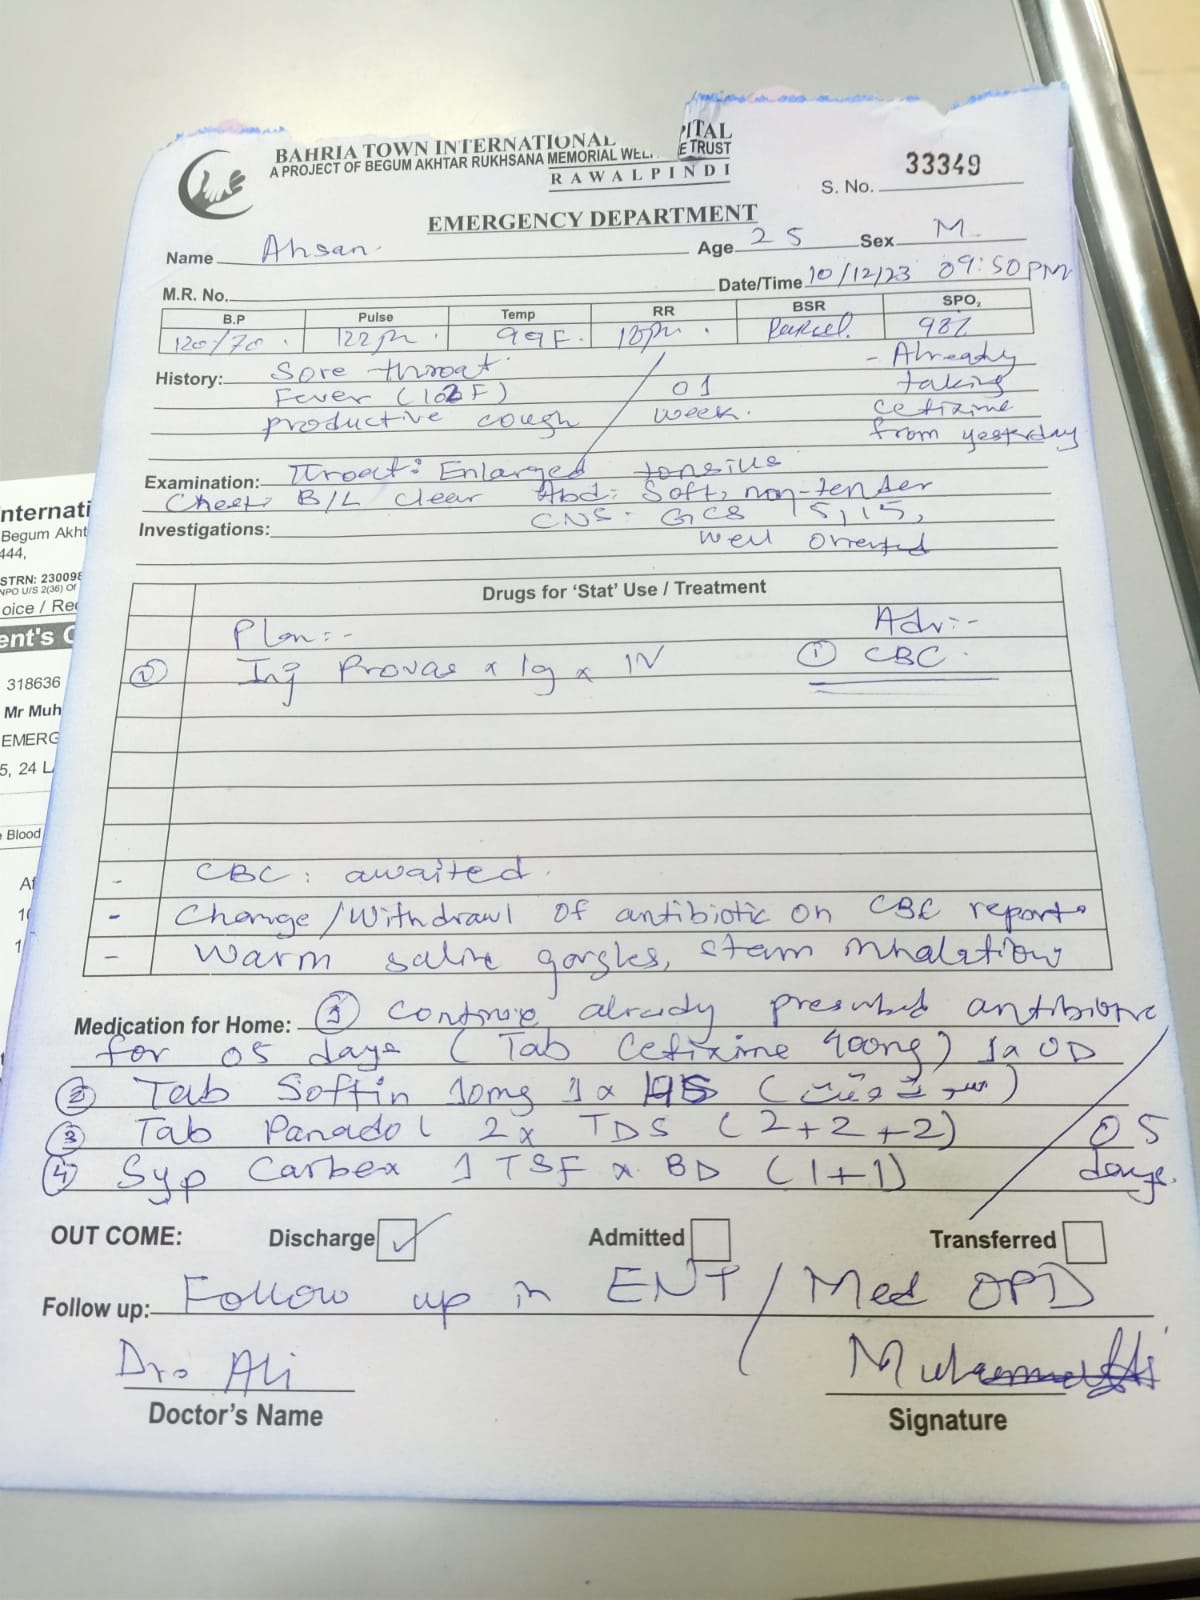 BAHRIA TOWN INTERNATIONAL PITAL
A PROJECT OF BEGUM AKHTAR RUKHSANA MEMORIAL WEL E TRUST
RAWALPINDI
S. No. 33349
EMERGENCY DEPARTMENT
Name Ahsan. Age 25 Sex M
M.R. No. Date/Time 10/12/23 09:50 PM
B.P Pulse Temp RR BSR SPO2
120/70 122 99F 98%
History: Sore throat
Fever (102F) 01
productive cough week.
- Already
taking
cefixime
from yesterday
Examination: Throat: Enlarged tonsils
Chest: B/L Clear Abd: Soft, non-tender
CNS: GCS 15/15,
Well oriented
Investigations:
Drugs for 'Stat' Use / Treatment
Plan:- Adv:-
① Inj Provas x 1g x IV ① CBC
- CBC: awaited.
- Change/Withdrawl of antibiotic on CBC report.
- Warm saline gargles, steam inhalation
Medication for Home: ① Continue already presribed antibiotic
for 05 days (Tab Cefixime 400mg) 1x OD
② Tab Softin 10mg 1 x HS (سوتے وقت)
③ Tab Panadol 2x TDS (2+2+2) 05
④ Syp Carbex 1 TSF x BD (1+1) days.
OUT COME: Discharge ✓ Admitted Transferred
Follow up: Follow up in ENT / Med OPD
Dr. Ali
Doctor's Name Signature
nternati
Begum Akht
444,
STRN: 230098
NPO U/S 2(36) Of
oice / Re
ent's C
318636
Mr Muh
EMERG
5, 24 L
Blood